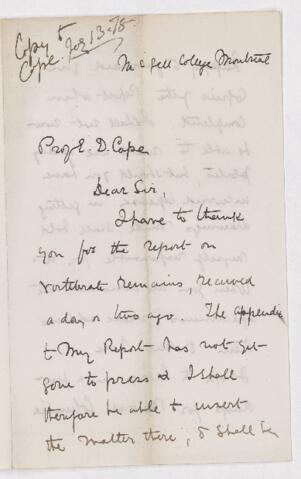 Copy to
Cope
Feb 13. 75
McGill College Montreal
Prof E. D. Cope
Dear Sir,
I have to thank
you for the report on
vertebrate remains, received
a day or two ago. The appendix
to my Report has not yet
gone to press & I shall
therefore be able to insert
the matter there, & shall be